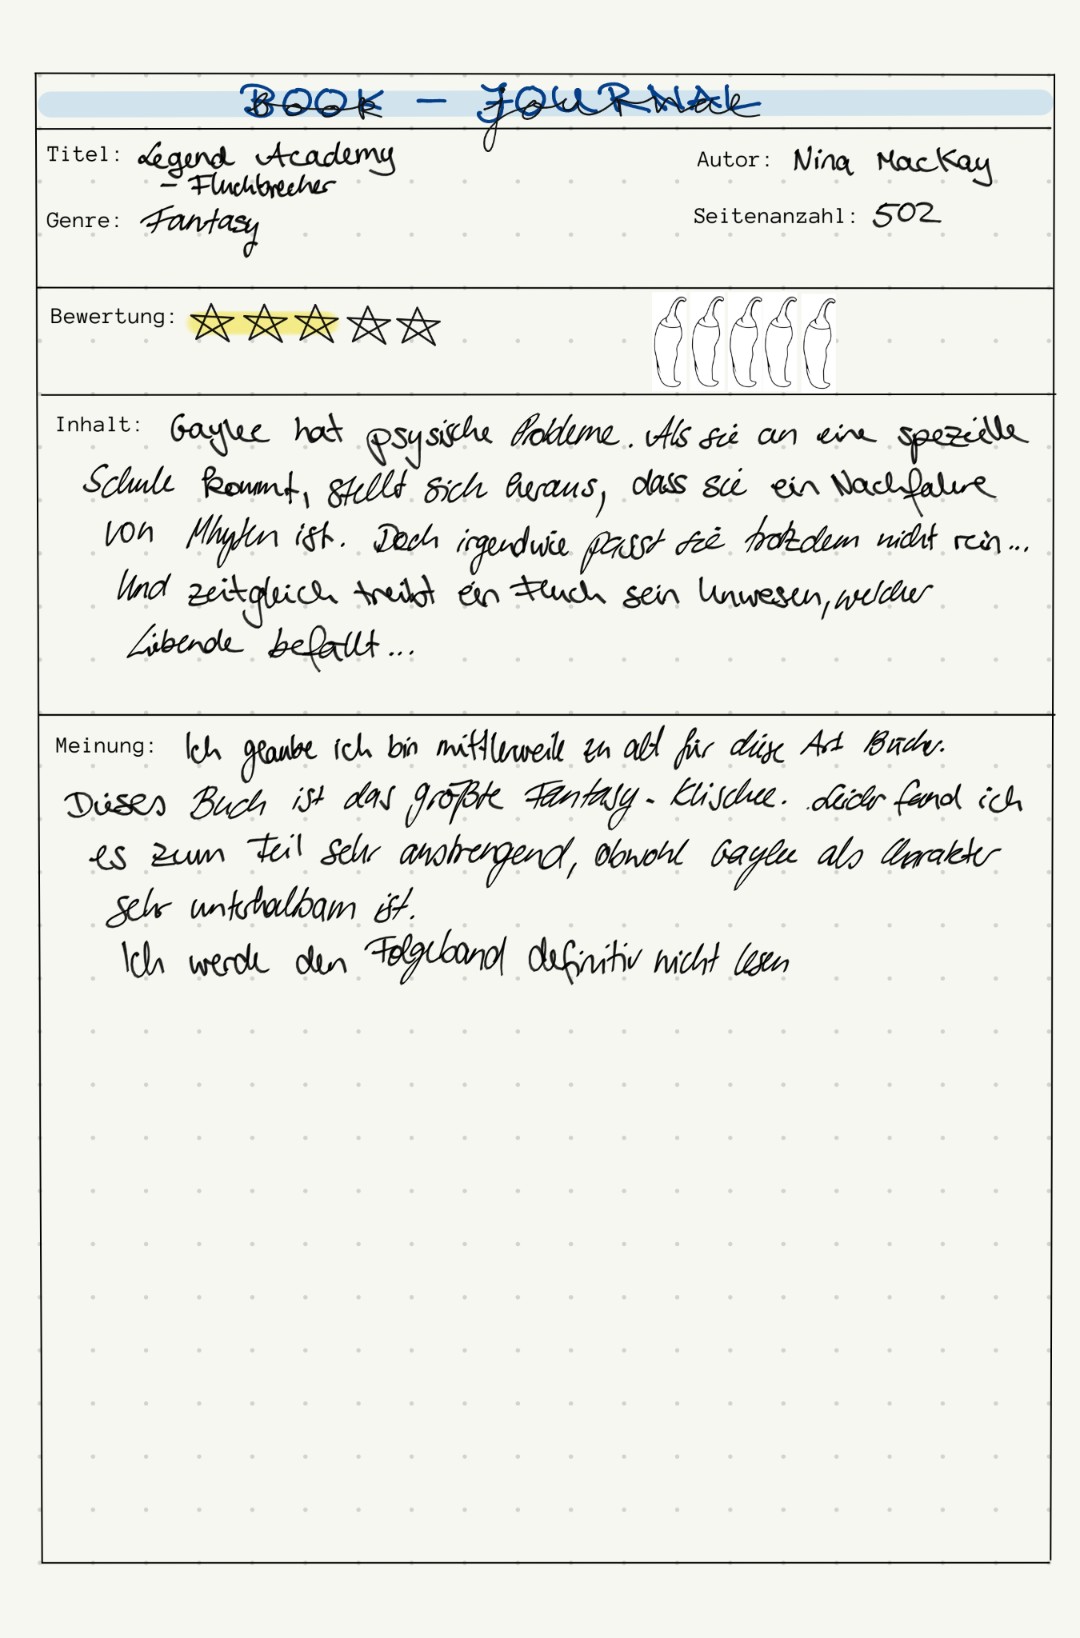 BOOK - JOURNAL
Titel: Legend Academy
- Fluchbrecher
Autor: Nina MacKay
Genre: Fantasy
Seitenanzahl: 502
Bewertung:
Inhalt: Gaylee hat psysische Probleme. Als sie an eine spezielle
Schule kommt, stellt sich heraus, dass sie ein Nachfahre
von Mhyten ist. Doch irgendwie passt sie trotzdem nicht rein...
Und zeitgleich treibt ein Fluch sein Unwesen, welcher
Liebende befällt...
Meinung: Ich glaube ich bin mittlerweile zu alt für diese Art Bücher.
Dieses Buch ist das größte Fantasy-Klischee. Leider fand ich
es zum Teil sehr anstrengend, obwohl Gaylee als Charakter
sehr unterhaltsam ist.
Ich werde den Folgeband definitiv nicht lesen